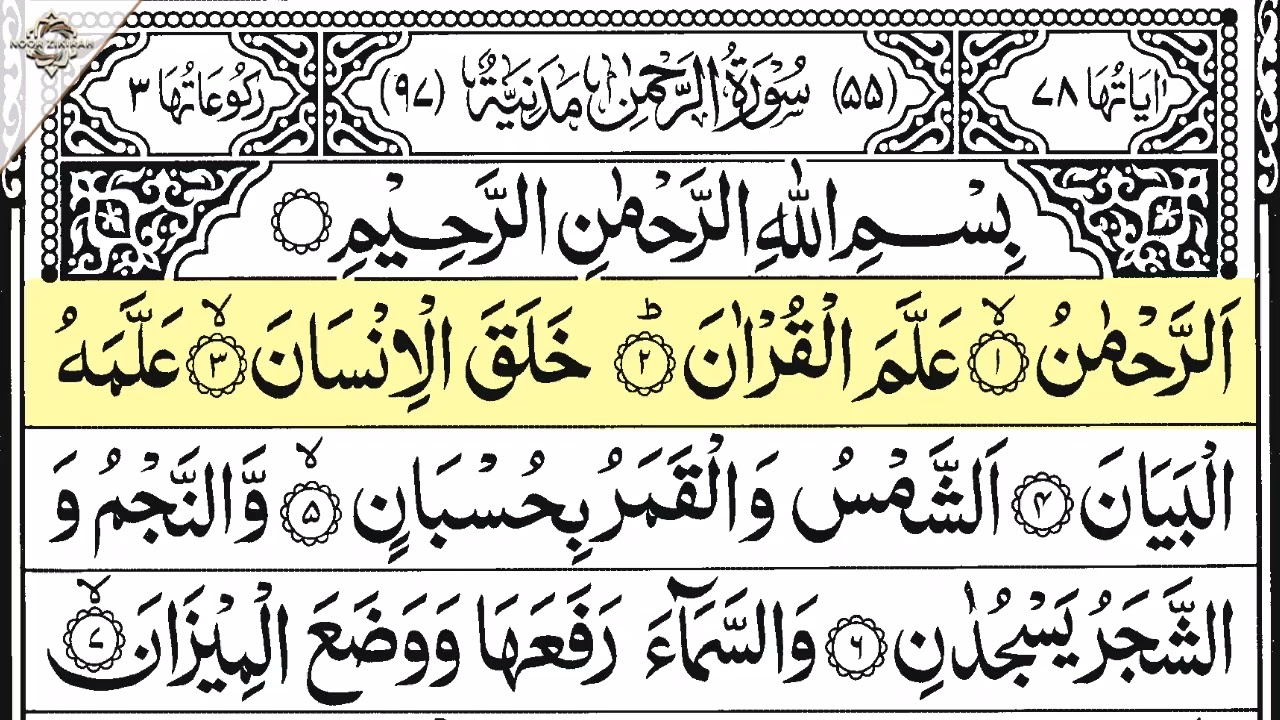 NOOR ZIKIRAH
اٰيَاتُهَا ٧٨ (٥٥) سُوْرَةُ الرَّحْمٰنِ مَدَنِيَّةٌ (٩٧) رُكُوْعَاتُهَا ٣
بِسْمِ اللّٰهِ الرَّحْمٰنِ الرَّحِيْمِ
اَلرَّحْمٰنُ ۙ‏ ١ عَلَّمَ الْقُرْاٰنَ ؕ‏ ٢ خَلَقَ الْاِنْسَانَ ۙ‏ ٣ عَلَّمَهُ
الْبَيَانَ ٤ اَلشَّمْسُ وَالْقَمَرُ بِحُسْبَانٍ ۙ‏ ٥ وَّالنَّجْمُ وَ
الشَّجَرُ يَسْجُدٰنِ ٦ وَالسَّمَآءَ رَفَعَهَا وَوَضَعَ الْمِيْزَانَ ۙ‏ ٧